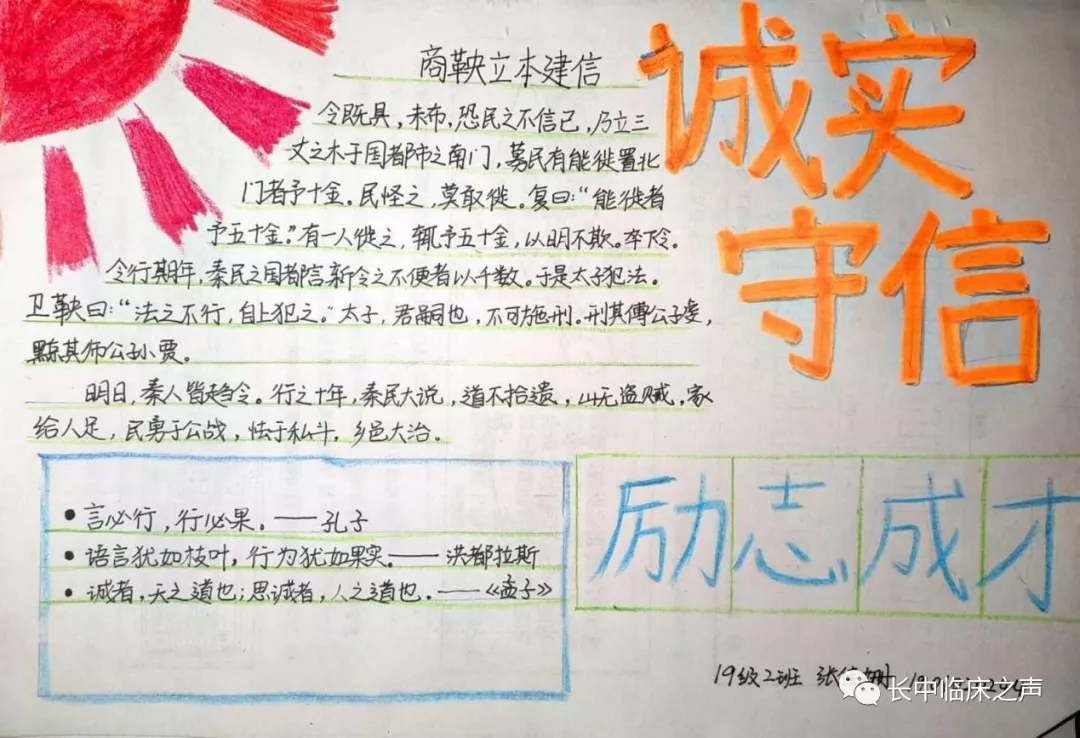 诚实
守信
商鞅立本建信
令既具，未布，恐民之不信已，乃立三
丈之木于国都市之南门，募民有能徙置北
门者予十金。民怪之，莫敢徙。复曰：“能徙者
予五十金。”有一人徙之，辄予五十金，以明不欺。卒下令。
令行期年，秦民之国都言新令之不便者以千数。于是太子犯法。
卫鞅曰：“法之不行，自上犯之。”太子，君嗣也，不可施刑。刑其傅公子虔，
黥其师公子小贾。
明日，秦人皆趋令。行之十年，秦民大说，道不拾遗，山无盗贼，家
给人足，民勇于公战，怯于私斗，乡邑大治。
• 言必行，行必果。——孔子
• 语言犹如枝叶，行为犹如果实。——洪都拉斯
• 诚者，天之道也；思诚者，人之道也。——《孟子》
励志成才
19级2班 张
长中临床之声